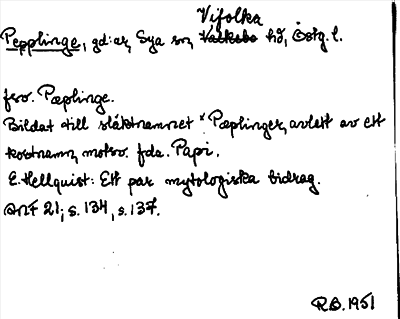 Vifolka
Pepplinge, gd:ar, Sya sn, Valkebo hd, Östg. l.
fsv. Pæplinge.
Bildat till släktnamnet *Pæplingar, avlett av ett
kortnamn, motsv. fda. Papi.
E. Hellquist: Ett par mytologiska bidrag.
ANF 21; s. 134, s. 137.
R.B. 1951